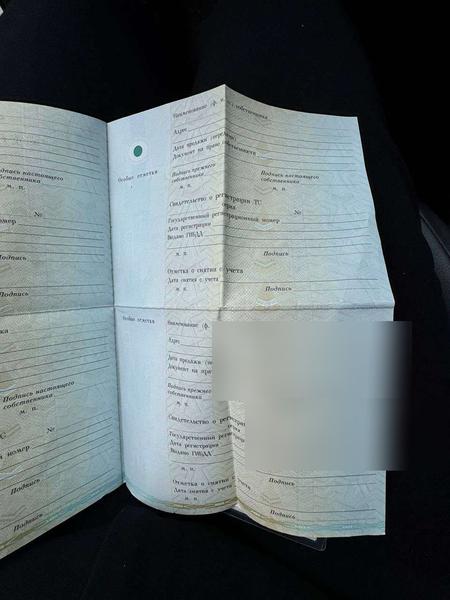 Подпись настоящего
собственника
м. п.
№
номер
Подпись
Подпись
Подпись настоящего
собственника
м. п.
№
номер
Подпись
Подпись
Особые отметки
Наименование (ф. и. о.) собственника
Адрес
Дата продажи (передачи)
Документ на право собственности
Подпись прежнего
собственника
м. п.
Подпись настоящего
собственника
м. п.
Свидетельство о регистрации ТС
серия
№
Государственный регистрационный номер
Дата регистрации
Выдано ГИБДД
м. п.
Подпись
Отметка о снятии с учета
Дата снятия с учета
м. п.
Подпись
Особые отметки
Наименование (ф.
Адрес
Дата продажи
Документ на
Подпись прежнего
собственника
м. п.
Свидетельство о
Государственный
Дата регистрации
Выдано ГИБДД
м. п.
Подпись
Отметка о снятии с
Дата снятия с учета
м. п.
Подпись